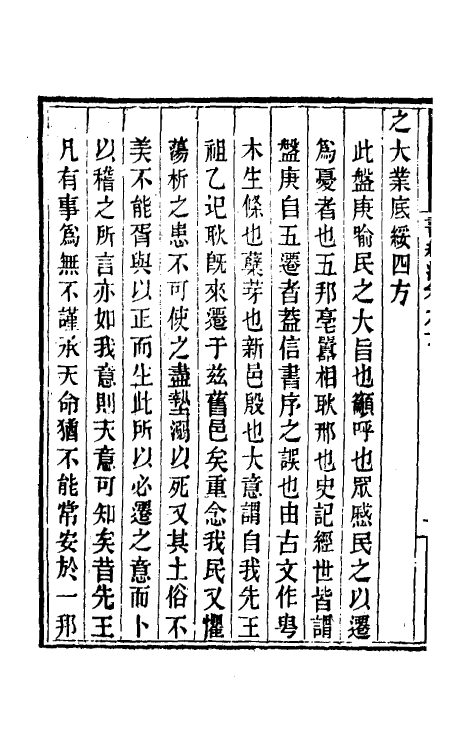 之大業底綏四方
此盤庚喻民之大旨也籲呼也眾慼民之以遷
爲憂者也五邦亳囂相耿邢也史記經世皆謂
盤庚自五遷者葢信書序之誤也由古文作𤰞
木生條也櫱芽也新邑殷也大意謂自我先王
祖乙圮耿旣來遷于玆舊邑矣重念我民又懼
蕩析之患不可使之盡墊溺以死又其土俗不
美不能胥與以正而生此所以必遷之意而卜
以稽之所言亦如我意則天意可知矣昔先王
凡有事爲無不謹承天命猶不能常安於一邦